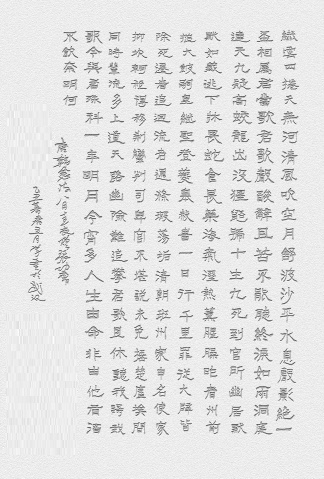 纖雲四捲天無河清風吹空月舒波沙平水息聲影絕一
盃相屬君當歌君歌聲酸辭且苦不能聽終淚如雨洞庭
連天九疑高蛟龍出沒猩鼯號十生九死到官所幽居默
默如藏逃下牀畏蛇食畏藥海氣溼蟄熏腥臊昨者州前
搥大鼓嗣皇繼聖登夔皋赦書一日行千里罪從大辟皆
除死遷者追迴流者還滌瑕蕩垢清朝班州家申名使家
抑坎軻祗得移荊蠻判司卑官不堪說未免捶楚塵埃間
同時輩流多上道天路幽險難追攀君歌且休聽我歌我
歌今與君殊科一年明月今宵多人生由命非由他有酒
不飲奈明何
唐韓愈詩八月十五夜贈張功曹